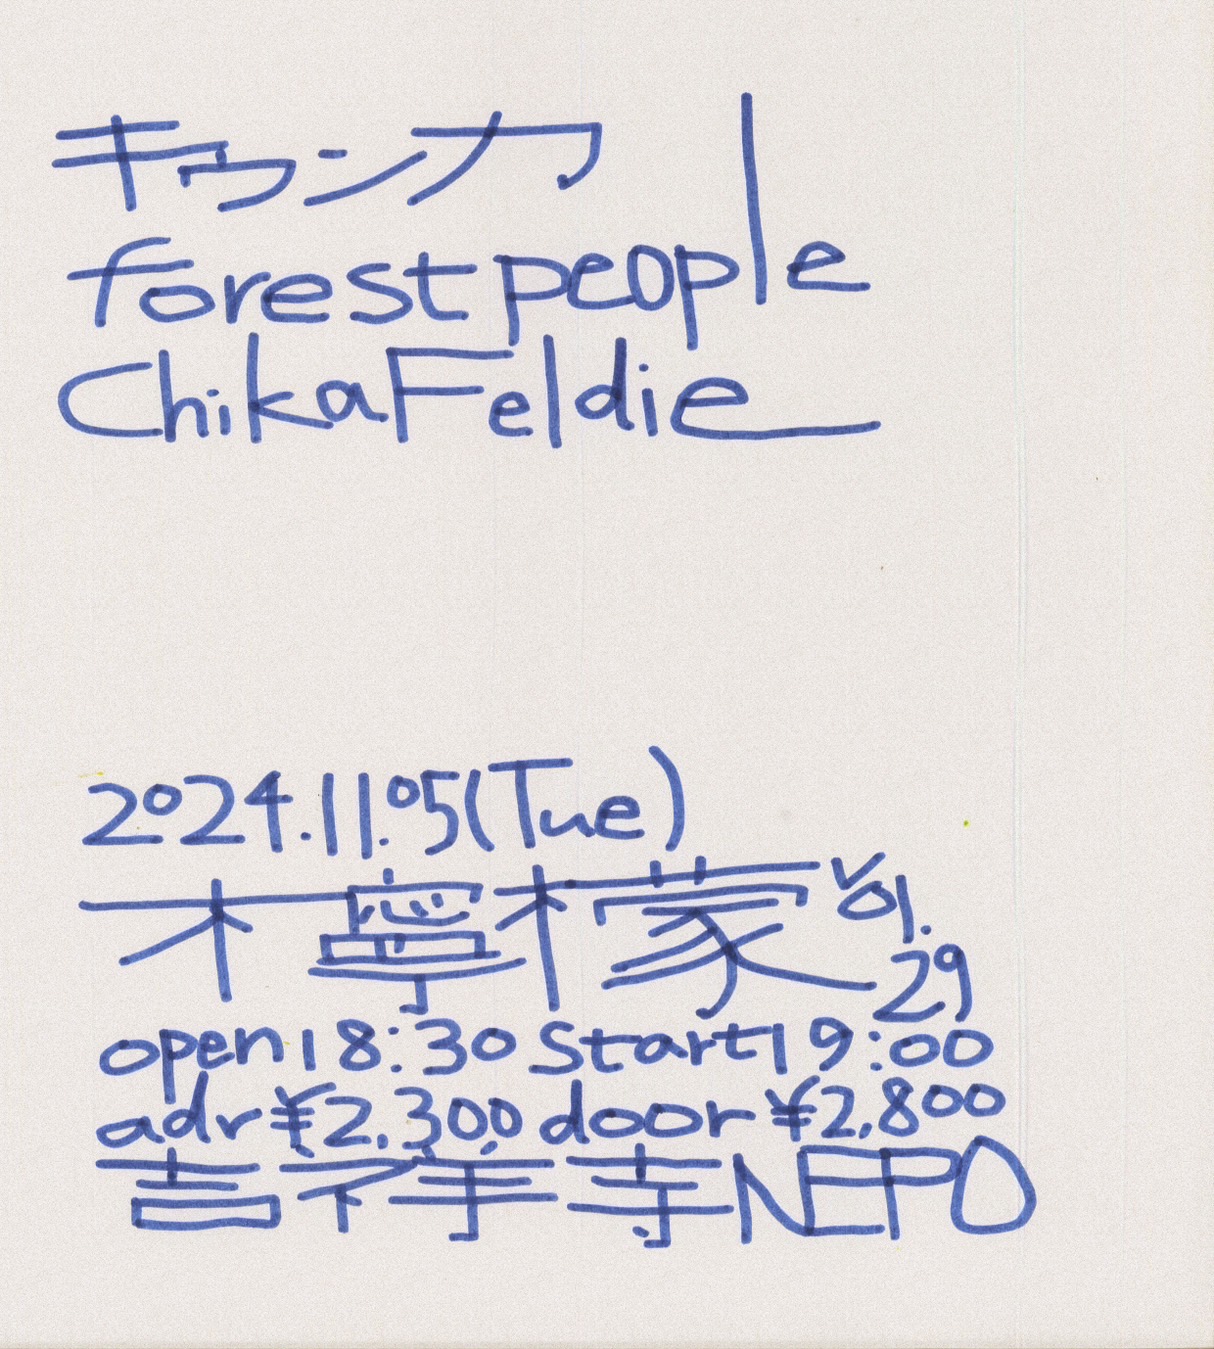 キゥンカ
forest people
Chika Feldie
2024.11.05(Tue)
檸檬 Vol.29
open 18:30 Start 19:00
adv ¥2,300 door ¥2,800
吉祥寺NEPO